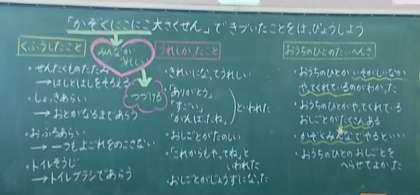 「かぞくにこにこ大さくせん」できづいたことをはっぴょうしよう
くふうしたこと
みんながうれしい
つづける
・せんたくものたたみ
→はしとはしをそろえる
・しょっきあらい
→おとがなるまであらう
・おふろあらい
→一つもよごれをのこさない
・トイレそうじ
→トイレブラシであらう
うれしかったこと
・きれいになってうれしい
・「ありがとう」
「すごい」
「がんばったね」
といわれた
・おしごとがたのしい
・「これからもやってね」と
いわれた
・おしごとがじょうずになった
おうちのひとのたいへんさ
・おうちのひとがいそがしいなか
やってくれているのがわかった
・おうちのひとがやってくれている
おしごとがたくさんある
・かぞくみんなでやるといい
・おうちのひとのおしごとを
へらせてよかった